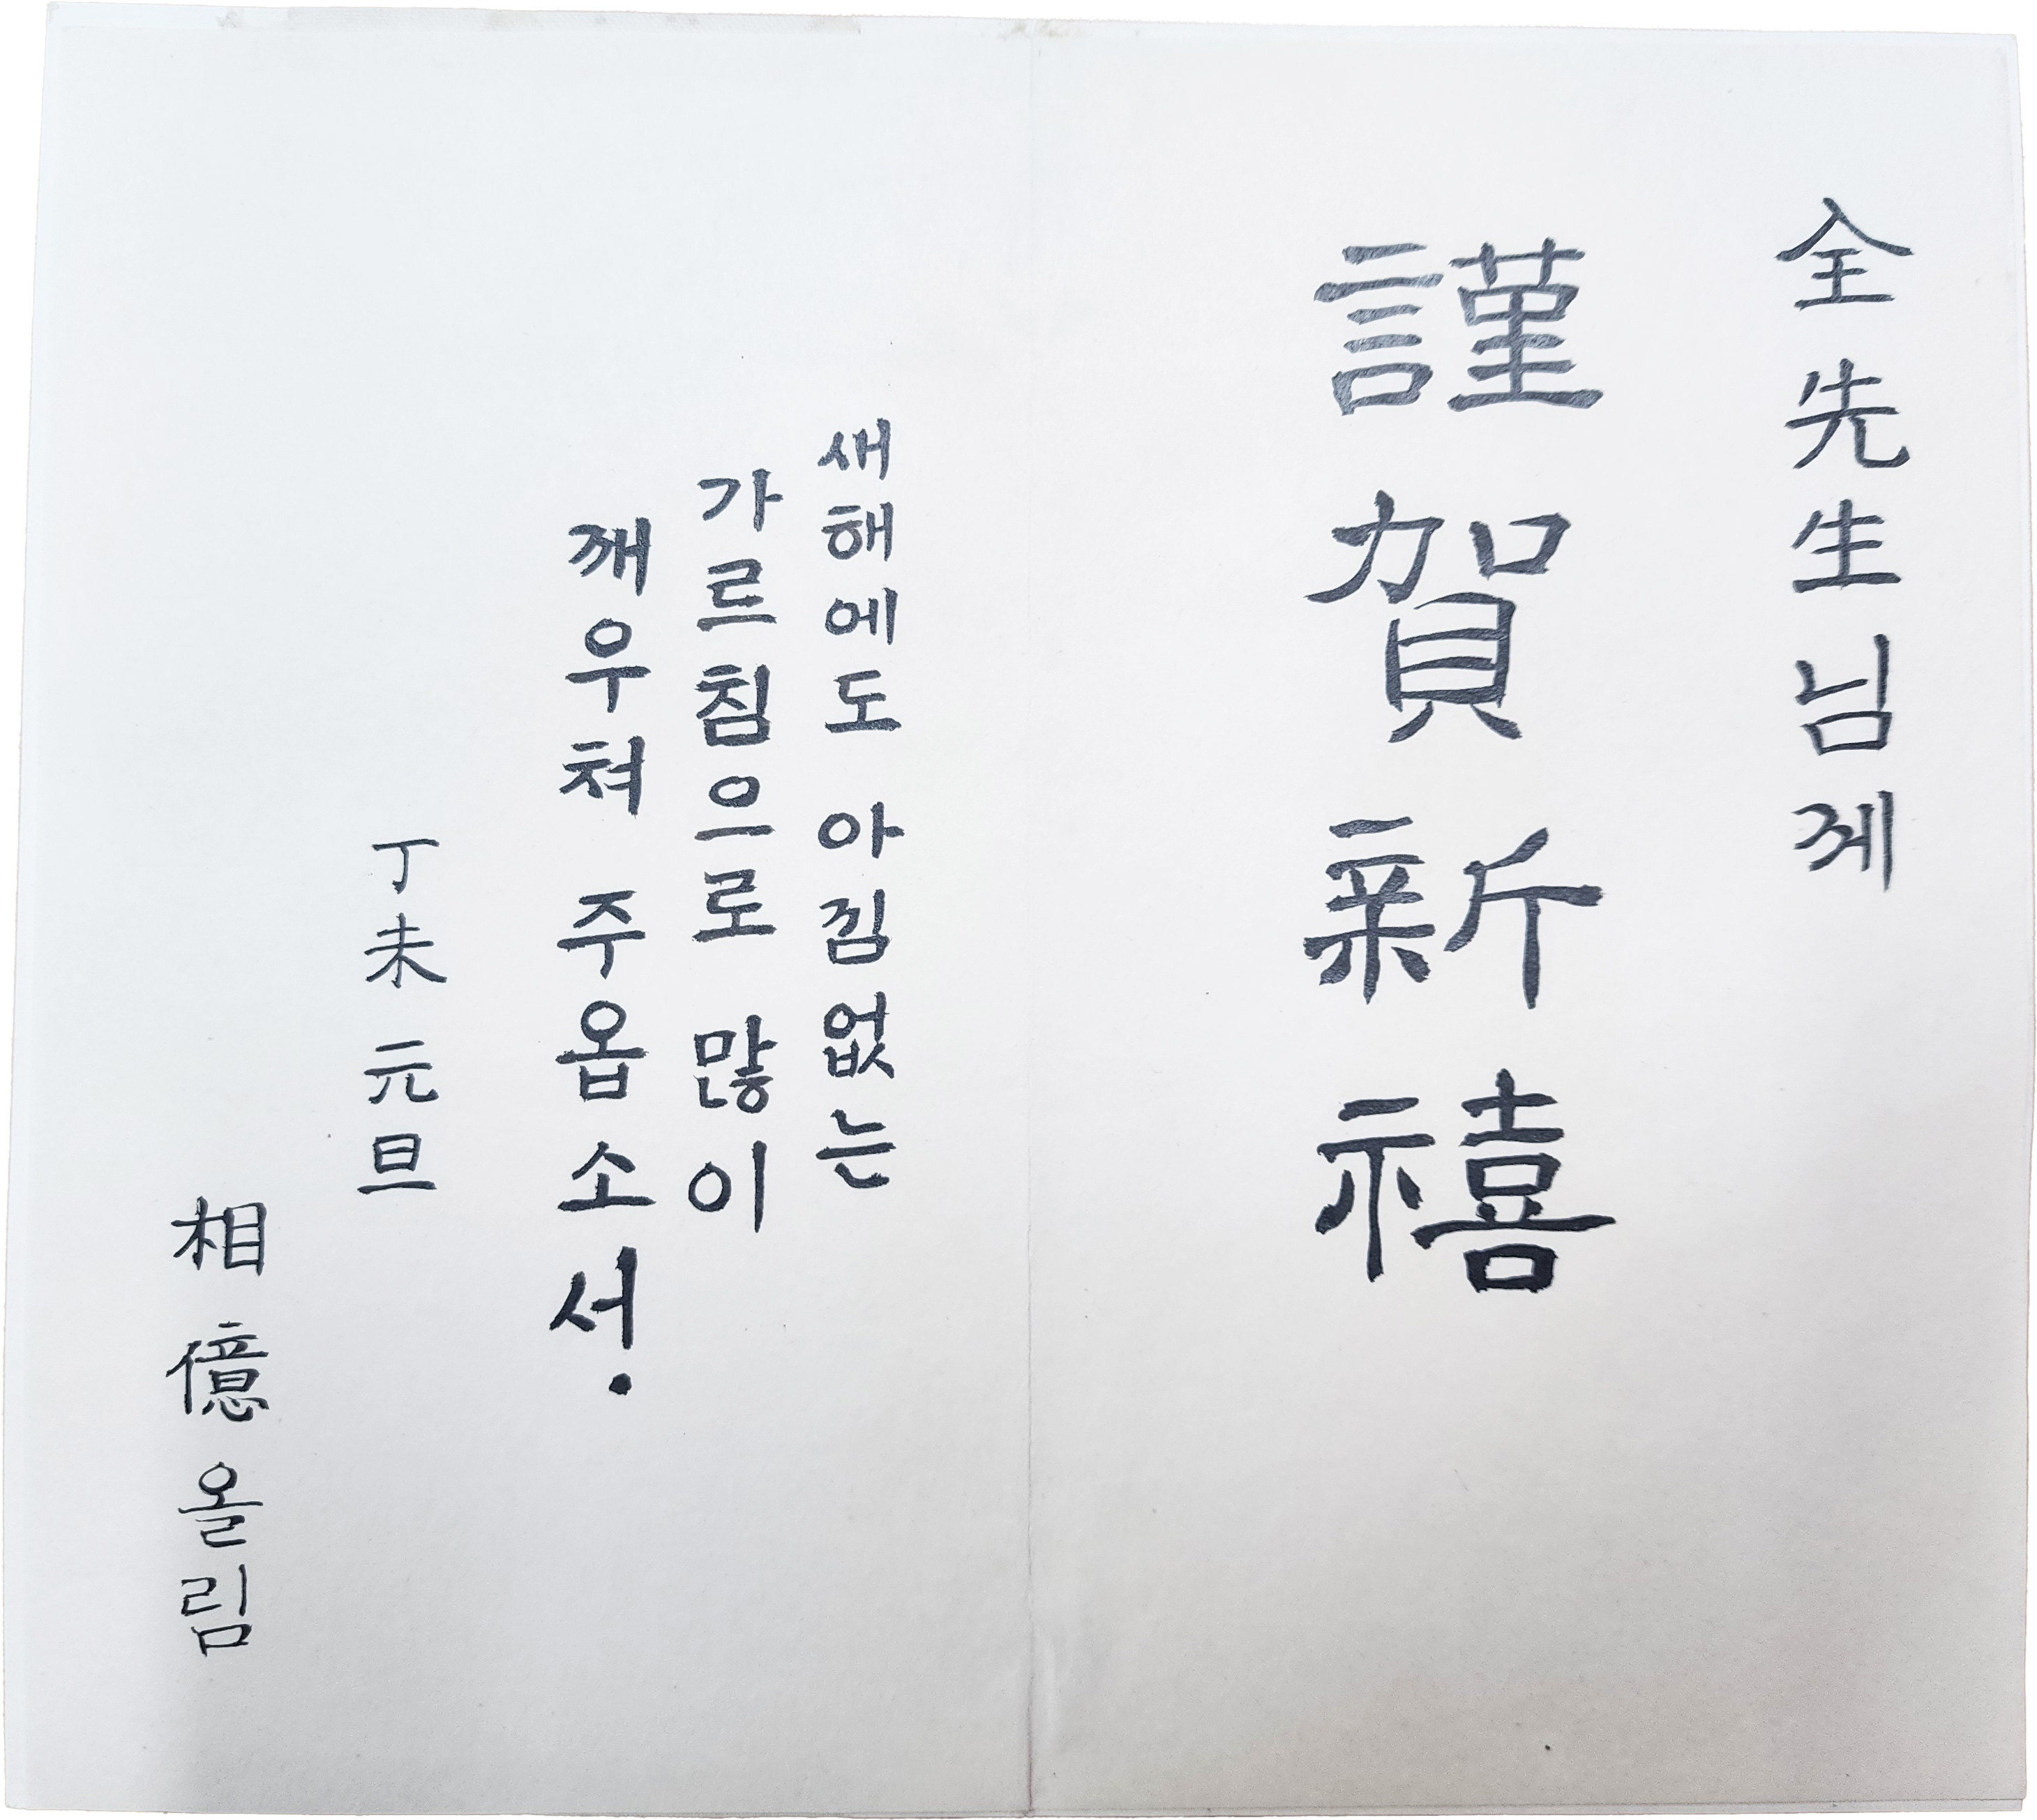 全先生님께
謹賀新禧
새해에도 아낌없는
가르침으로 많이
깨우쳐 주옵소서.
丁未 元旦
相億 올림